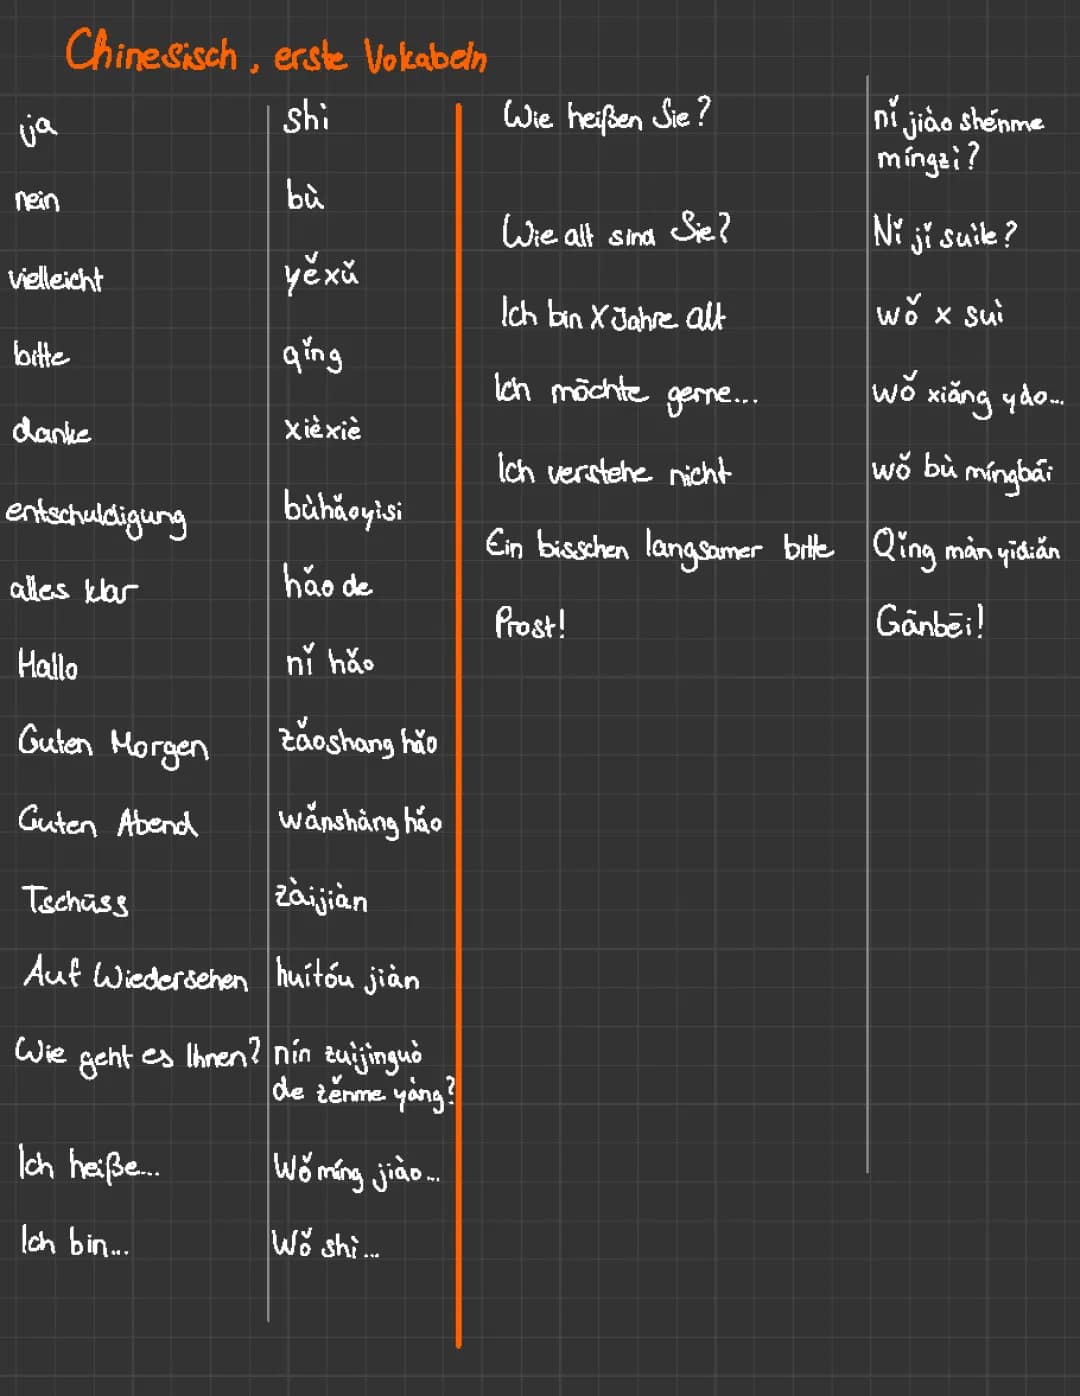 Chinesisch, erste Vokabeln
ja shì
nein bù
vielleicht yěxǔ
bitte qǐng
danke xièxiè
entschuldigung bùhǎoyìsi
alles klar hǎo de
Hallo nǐ hǎo
Guten Morgen zǎoshang hǎo
Guten Abend wǎnshàng hǎo
Tschüss zàijiàn
Auf Wiedersehen huítóu jiàn
Wie geht es Ihnen? nín zuìjìnguò
de zěnme yàng?
Ich heiße... Wǒ míng jiào...
Ich bin... Wǒ shì...
Wie heißen Sie? nǐ jiào shénme
míngzì?
Wie alt sind Sie? Nǐ jǐ suìle?
Ich bin X Jahre alt wǒ x suì
Ich möchte gerne... wǒ xiǎng yào...
Ich verstehe nicht wǒ bù míngbái
Ein bisschen langsamer bitte Qǐng màn yīdiǎn
Prost! Gānbēi!